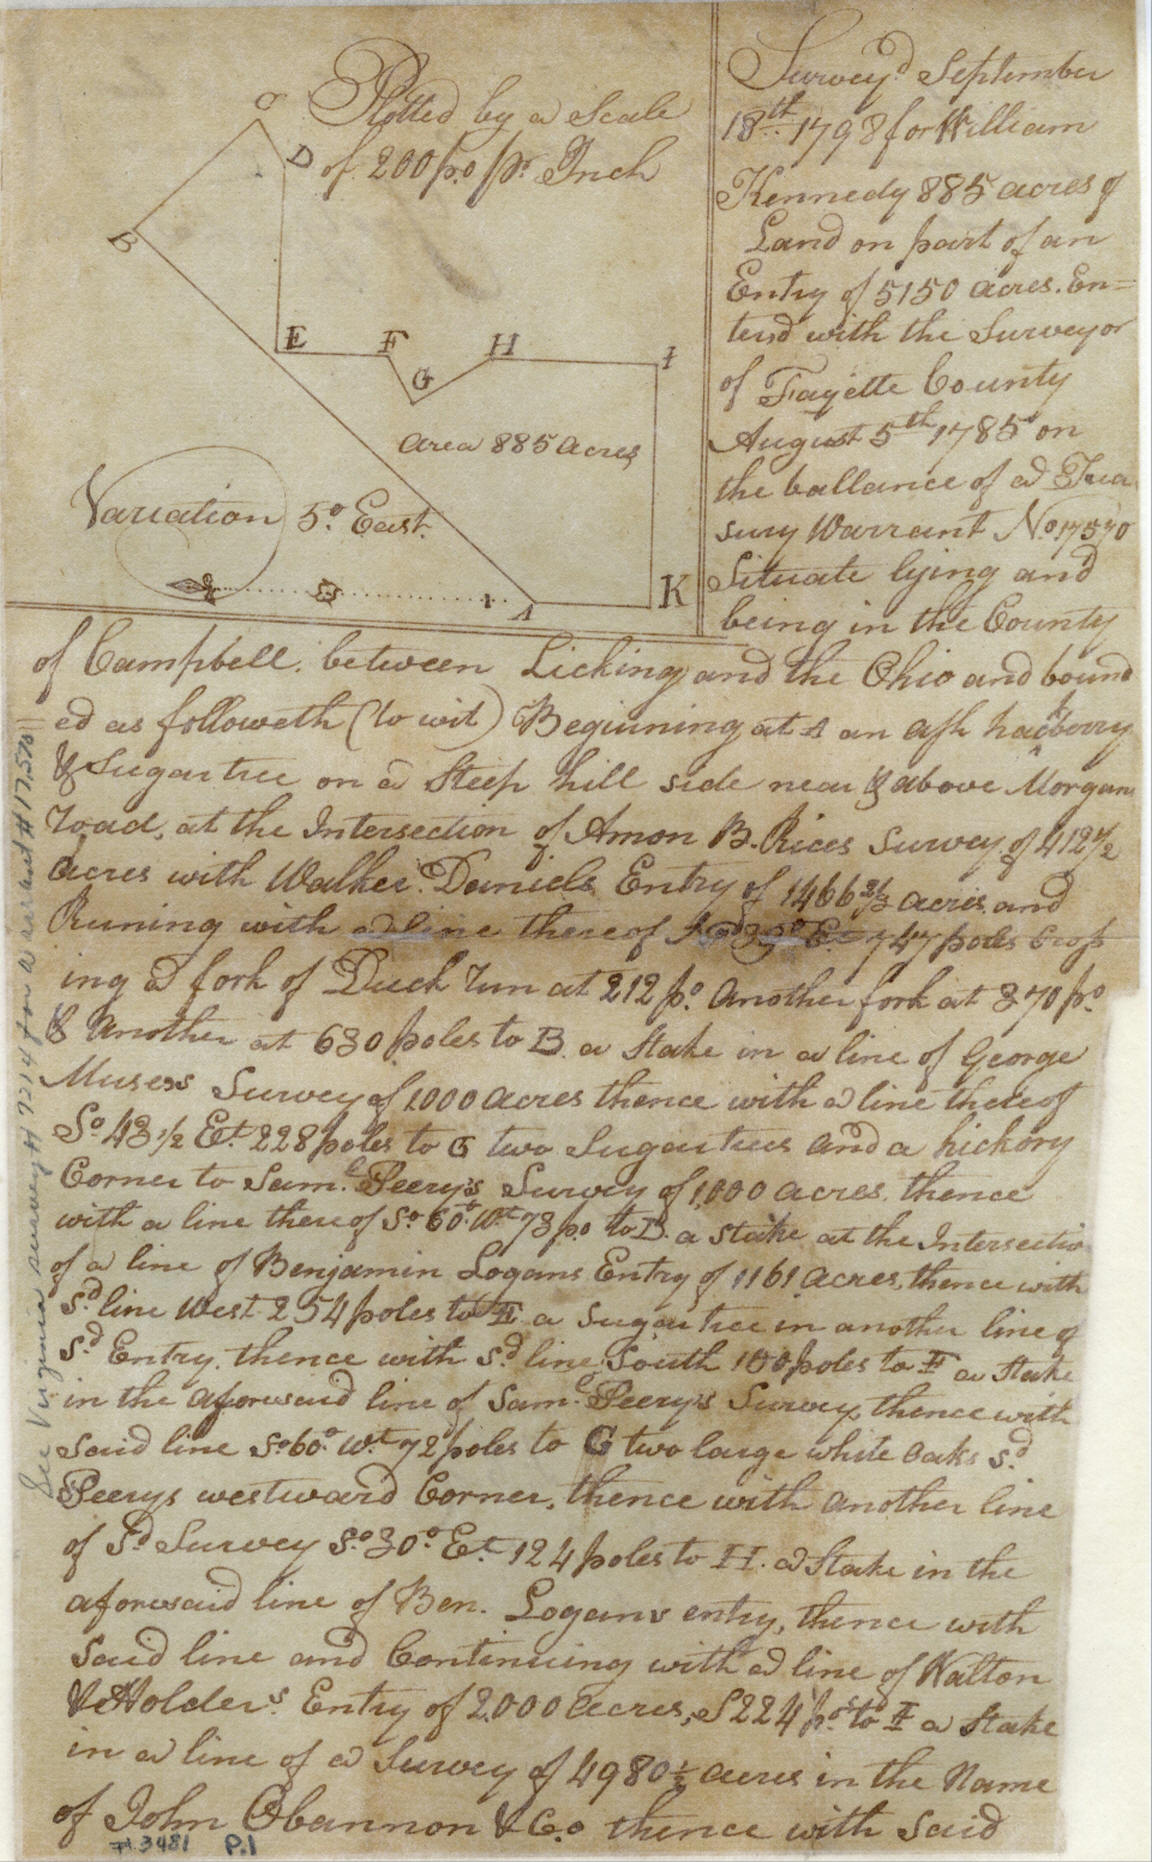 Plotted by a Scale
of 200 po. pr. Inch
C
D
B
E F H I
G
area 885 acres
Variation 5° East.
A
K
Survey,d September
18th 1798 for William
Kennedy 885 acres of
Land on part of an
Entry of 5150 acres. En=
terd with the Surveyor
of Fayette County
August 5th 1785 on
the ballance of a Trea
sury Warrant No. 17570
Situate lying and
being in the County
of Campbell. between Licking and the Ohio and bound
ed as followeth (to wit) Beginning at A an ash hackberry
& Sugartree on a Steep hill side near & above Morgans
road, at the Intersection of Amon B. Rices Survey of 412 1/2
acres with Walker Daniels Entry of 1466 2/3 acres and
Runing with a line thereof 747 poles cross
ing a fork of Duck run at 212 po. another fork at 370 po.
& another at 630 poles to B. a Stake in a line of George
Muses Survey of 1000 acres thence with a line thereof
So. 43 1/2 Et. 228 poles to C two Sugartrees and a hickory
Corner to Saml. Peery's Survey of 1,000 acres. thence
with a line thereof So. 60° Wt. 73 po. to D. a Stake at the Intersectio
of a line of Benjamin Logans Entry of 1161 acres, thence with
Sd. line West 254 poles to E a Sugartree in another line of
Sd. Entry. thence with sd. line South 100 poles to F a Stake
in the aforesaid line of Saml. Peery's Survey, thence with
said line So. 60° Wt. 72 poles to G two large white oaks sd.
Peerys westward Corner, thence with another line
of Sd. Survey So. 30° Et. 124 poles to H. a Stake in the
aforesaid line of Ben. Logans entry, thence with
said line and Continuing with a line of Walton
& Holders Entry of 2000 acres, S 224 pos. to I a Stake
in a line of a Survey of 4980 1/2 acres in the Name
of John Obannon & Co. thence with said
# 3481 P.1
See Virginia survey # 7214 for warrant # 17,570